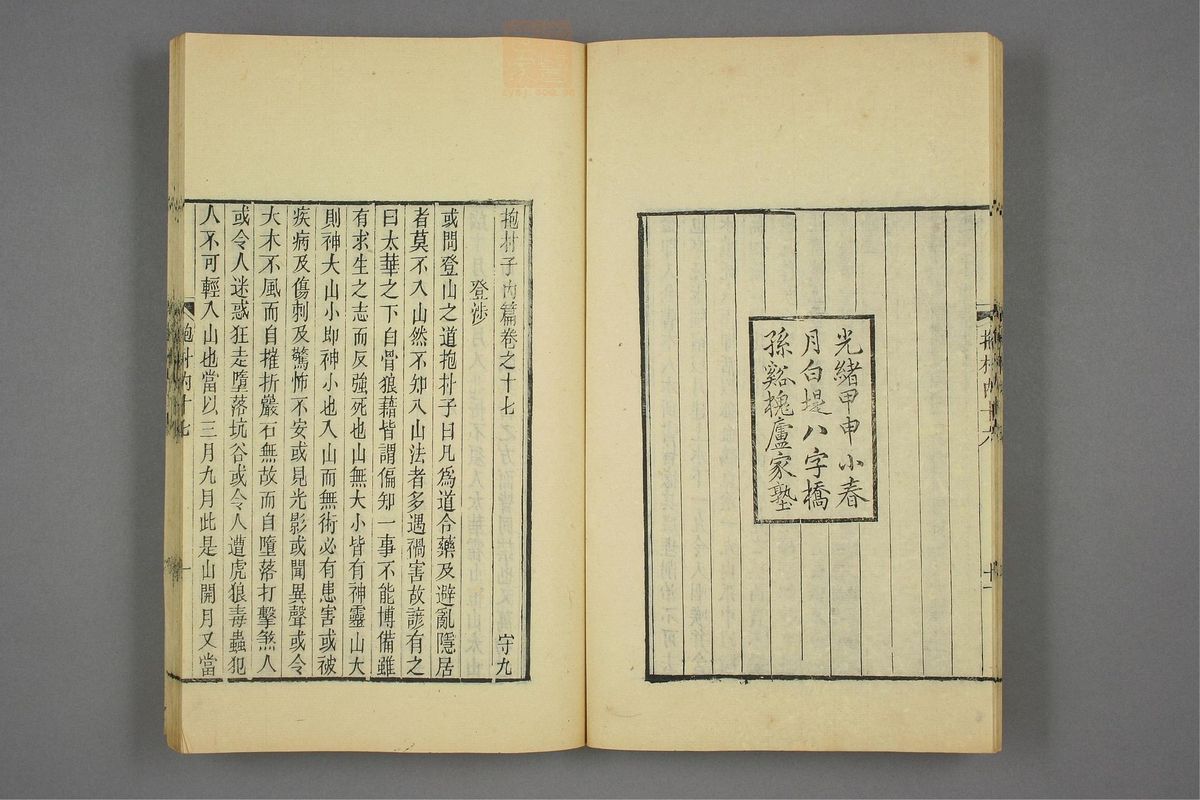 光緒甲申小春
月白堤八字橋
孫谿槐廬家塾
抱朴子內篇卷之十七 守九
登涉
或問登山之道抱朴子曰凡爲道合藥及避亂隱居
者莫不入山然不知入山法者多遇禍害故諺有之
曰太華之下白骨狼藉皆謂偏知一事不能博備雖
有求生之志而反強死也山無大小皆有神靈山大
則神大山小卽神小也入山而無術必有患害或被
疾病及傷刺及驚怖不安或見光影或聞異聲或令
大木不風而自摧折巖石無故而自墮落打擊煞人
或令人迷惑狂走墮落坑谷或令人遭虎狼毒蟲犯
人不可輕入山也當以三月九月此是山開月又當
抱朴內十七 一